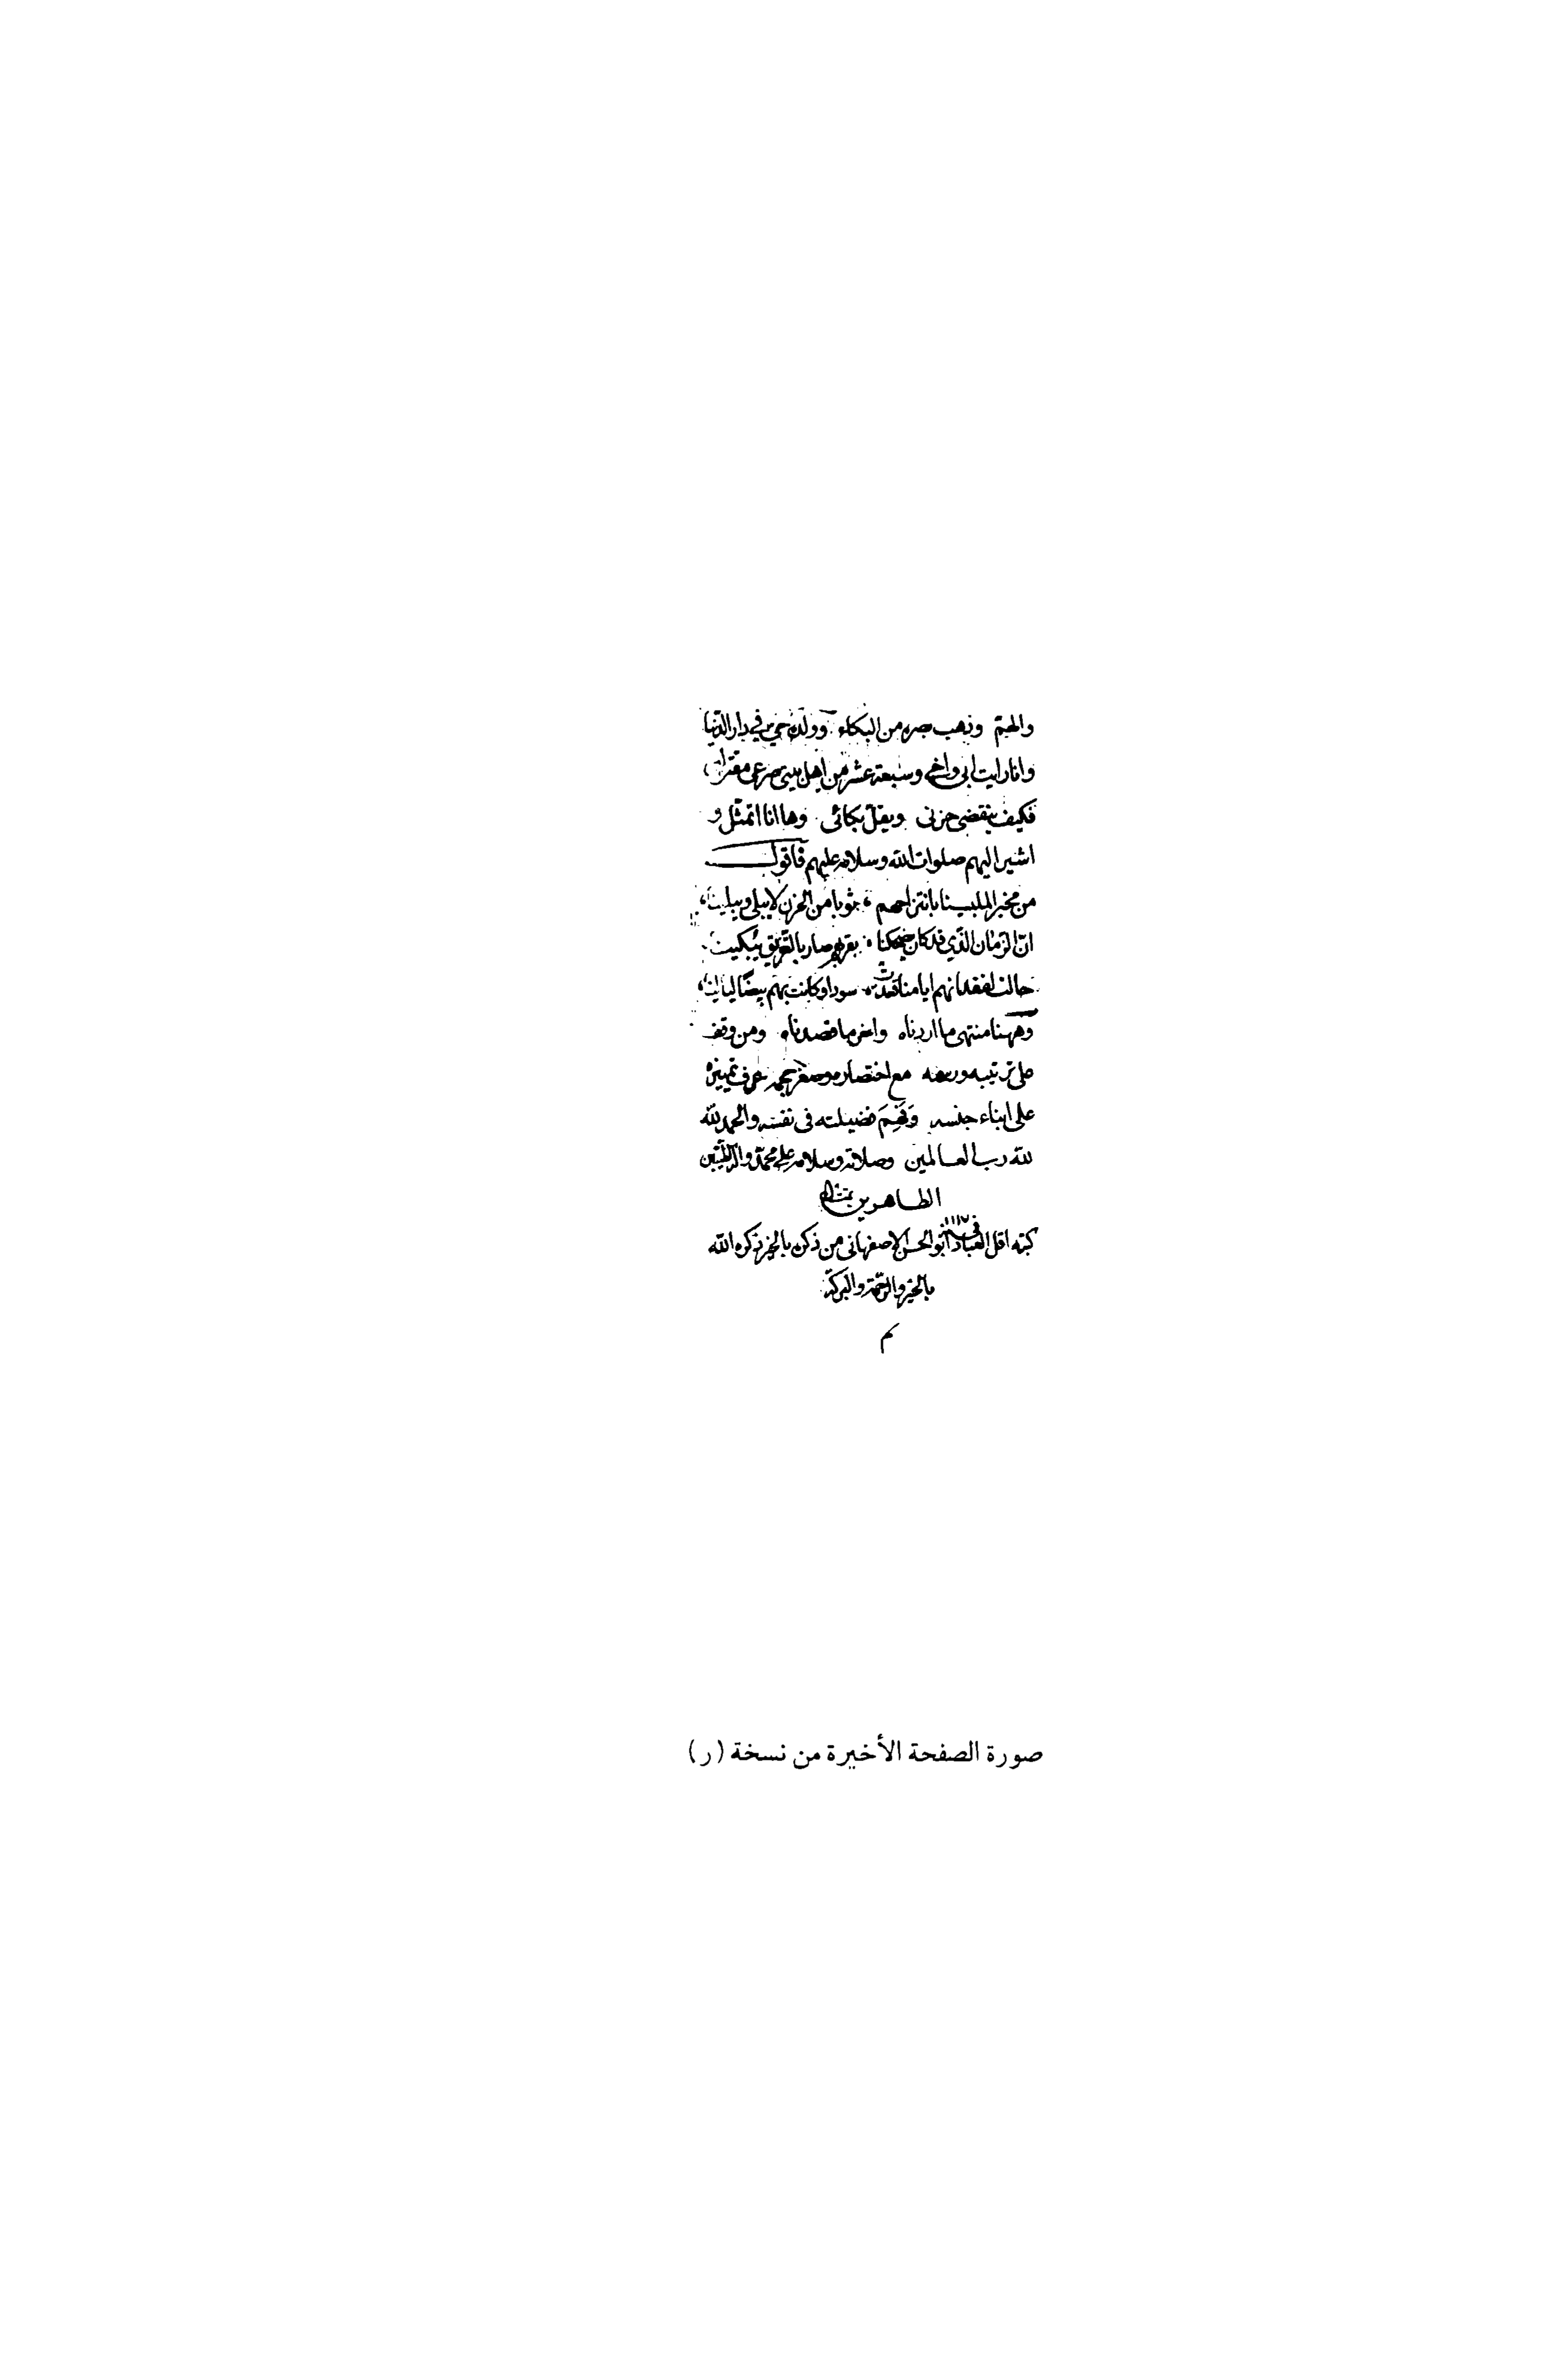 والهمّ وذهب بصره من البكاء وولده حي في دار الدّنيا
وانا رايت ابي واخي وسبعة عشر من اهل بيتي صرعى
فكيف ينقضي حزني ويقلّ بكائي وها انا اتمثّل و
اشير اليهم صلوات الله وسلامه عليهم فاقول
من مخبر الملبسينا بانتزاحهم ثوبا من الحزن لا يبلى ويبلينا
انّ الزمان الّذي قد كان يضحكنا بقربهم صار بالتفريق يبكينا
حالت لفقدانهم ايامنا فغدت سودا وكانت بهم بيضا ليالينا
وههنا منتهى ما اردناه واخر ما قصدناه ومن وقف
على ترتيبه ورسمه مع اختصاره وصغر حجمه عرف تمييزه
على ابناء جنسه وفهم فضيلته في نفسه والحمد لله
لله رب العالمين وصلاته وسلامه على محمد واله الطيّبين
الطاهرين
كتبه اقل العباد ابو الحسن الاصفهاني في سنة ١١١٧ من ذكره بالخير ذكره الله
بالخير والرحمة والبركة
م
صورة الصفحة الأخيرة من نسخة (ر)